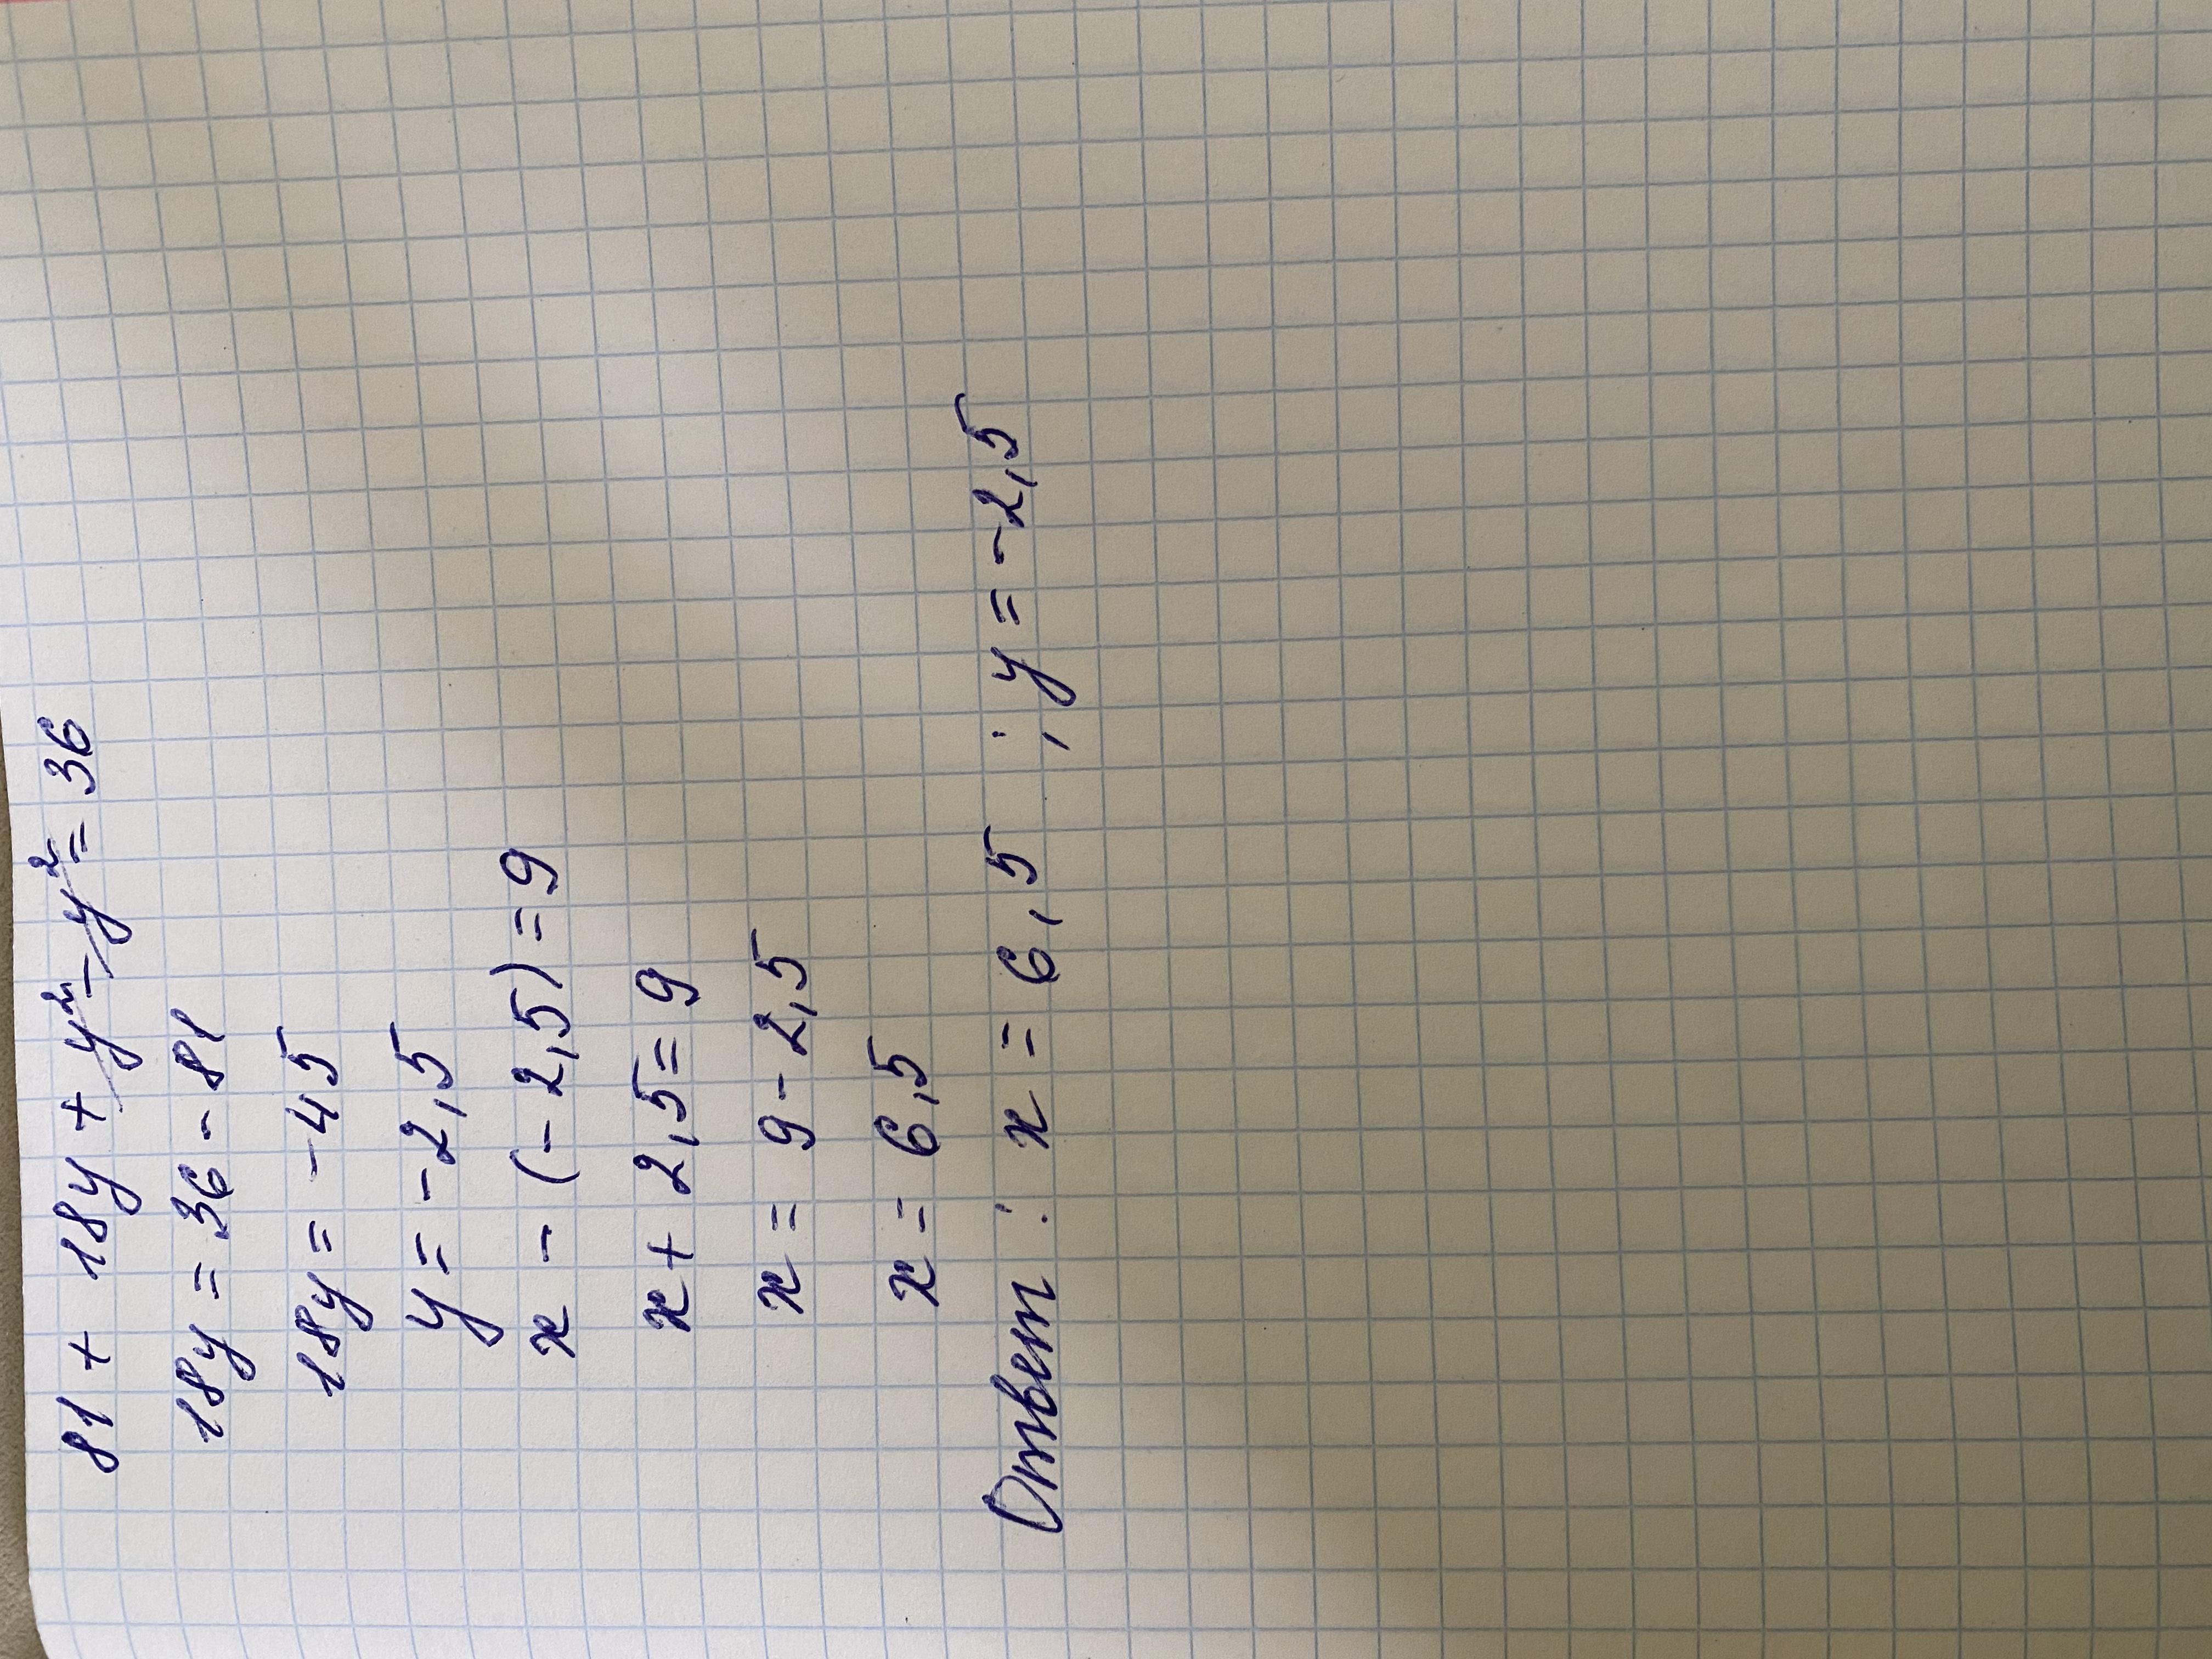 81 + 18y + y² - y² = 36
18y = 36 - 81
18y = -45
y = -2,5
x - (-2,5) = 9
x + 2,5 = 9
x = 9 - 2,5
x = 6,5
Ответ : x = 6,5 ; y = -2,5